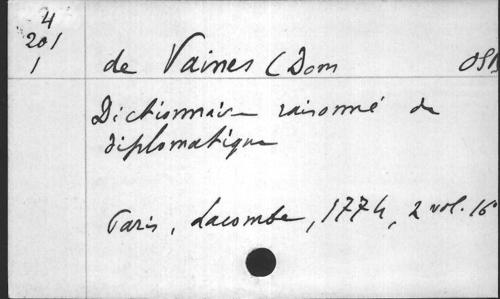 4
201
1
de Vaines (Dom OSB
Dictionnaire raisonné de
diplomatique
Paris, Lacombe, 1774, 2 vol. 16°